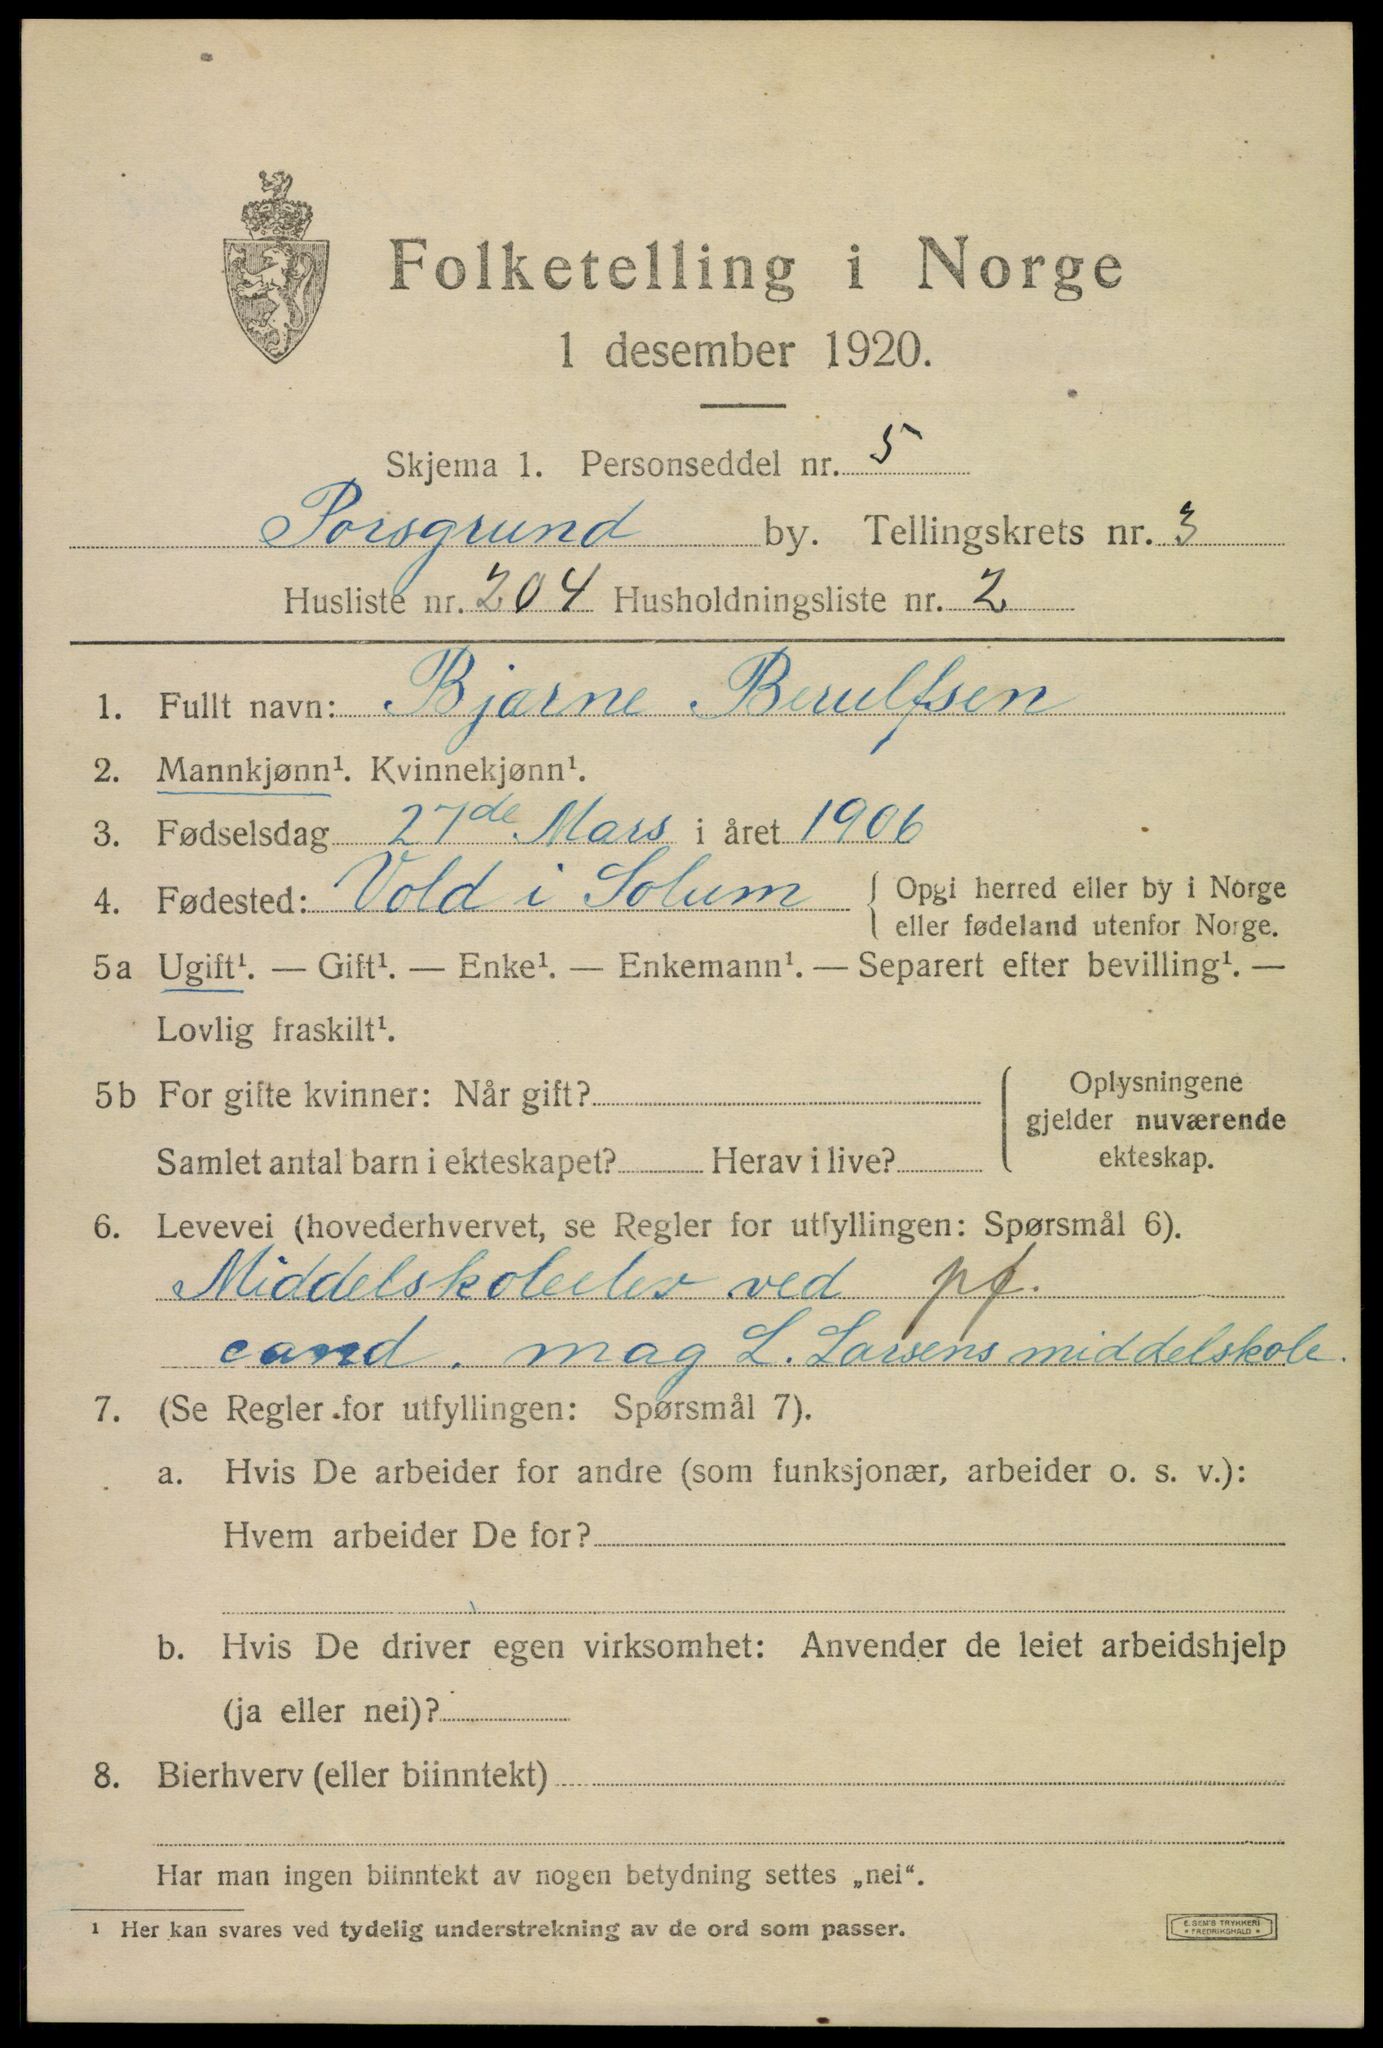 Folketelling i Norge
1 desember 1920.
Skjema 1. Personseddel nr. 5
Porsgrund by. Tellingskrets nr. 3
Husliste nr. 204 Husholdningsliste nr. 2
1. Fullt navn: Bjarne Berulfsen
2. Mannkjønn¹. Kvinnekjønn¹.
3. Fødselsdag 27de Mars i året 1906
4. Fødested: Vold i Solum { Opgi herred eller by i Norge
eller fødeland utenfor Norge.
5a Ugift¹. — Gift¹. — Enke¹. — Enkemann¹. — Separert efter bevilling¹. —
Lovlig fraskilt¹.
5b For gifte kvinner: Når gift?
Samlet antal barn i ekteskapet? Herav i live?
Oplysningene
gjelder nuværende
ekteskap.
6. Levevei (hovederhvervet, se Regler for utfyllingen: Spørsmål 6).
Middelskoleelev ved pf.
cand. mag L. Larsens middelskole.
7. (Se Regler for utfyllingen: Spørsmål 7).
a. Hvis De arbeider for andre (som funksjonær, arbeider o. s. v.):
Hvem arbeider De for?
b. Hvis De driver egen virksomhet: Anvender de leiet arbeidshjelp
(ja eller nei)?
8. Bierhverv (eller biinntekt)
Har man ingen biinntekt av nogen betydning settes „nei“.
¹ Her kan svares ved tydelig understrekning av de ord som passer.
E. SEM'S TRYKKERI
* FREDRIKSHALD *